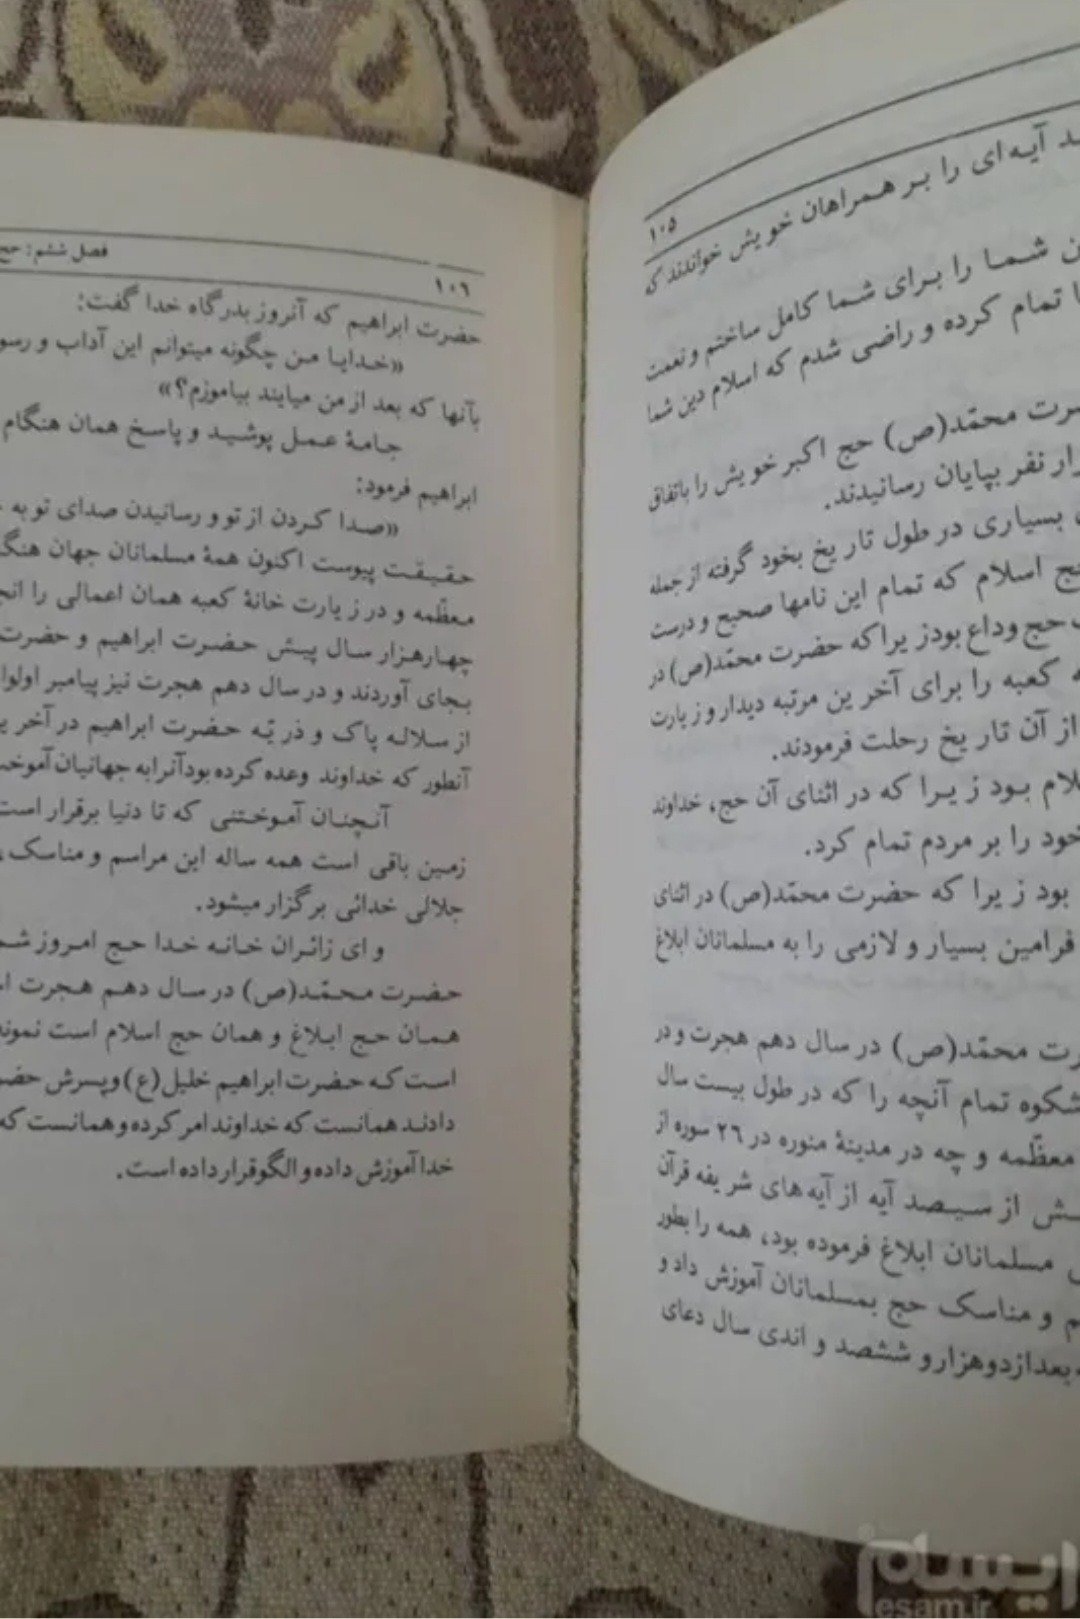 ۱۰۵
د آیه‌ای را بر همراهان خویش خواندند که
ن شما را برای شما کامل ساختم و نعمت
ا تمام کرده و راضی شدم که اسلام دین شما
ضرت محمّد(ص) حج اکبر خویش را باتفاق
زار نفر بپایان رسانیدند.
بسیاری در طول تاریخ بخود گرفته از جمله
حج اسلام که تمام این نامها صحیح و درست
حج وداع بود زیرا که حضرت محمّد(ص) در
ه کعبه را برای آخرین مرتبه دیدار و زیارت
از آن تاریخ رحلت فرمودند.
لام بود زیرا که در اثنای آن حج، خداوند
خود را بر مردم تمام کرد.
بود زیرا که حضرت محمّد(ص) در اثنای
فرامین بسیار و لازمی را به مسلمانان ابلاغ
رت محمّد(ص) در سال دهم هجرت و در
شکوه تمام آنچه را که در طول بیست سال
معظّمه و چه در مدینهٔ منوره در ۲۶ سوره از
ش از سیصد آیه از آیه‌های شریفه قرآن
مسلمانان ابلاغ فرموده بود، همه را بطور
م و مناسک حج بمسلمانان آموزش داد و
بعد از دو هزار و ششصد و اندی سال دعای
فصل ششم: حج
۱۰۶
حضرت ابراهیم که آنروز بدرگاه خدا گفت:
«خدایا من چگونه میتوانم این آداب و رسو
بآنها که بعد از من میایند بیاموزم؟»
جامهٔ عمل پوشید و پاسخ همان هنگام
ابراهیم فرمود:
«صدا کردن از تو و رسانیدن صدای تو به
حقیقت پیوست اکنون همهٔ مسلمانان جهان هنگ
معظّمه و در زیارت خانهٔ کعبه همان اعمالی را انج
چهارهزار سال پیش حضرت ابراهیم و حضرت
بجای آوردند و در سال دهم هجرت نیز پیامبر اولوا
از سلاله پاک و ذریّه حضرت ابراهیم در آخر ی
آنطور که خداوند وعده کرده بود آنرا به جهانیان آموخت
آنچنان آموختنی که تا دنیا برقرار است
زمین باقی است همه ساله این مراسم و مناسک،
جلالی خدائی برگزار میشود.
و ای زائران خانه خدا حج امروز شم
حضرت محمّد(ص) در سال دهم هجرت ا
همان حج ابلاغ و همان حج اسلام است نمون
است که حضرت ابراهیم خلیل(ع) و پسرش حض
دادند همانست که خداوند امر کرده و همانست که
خدا آموزش داده و الگو قرار داده است.
ایسام
esam.ir